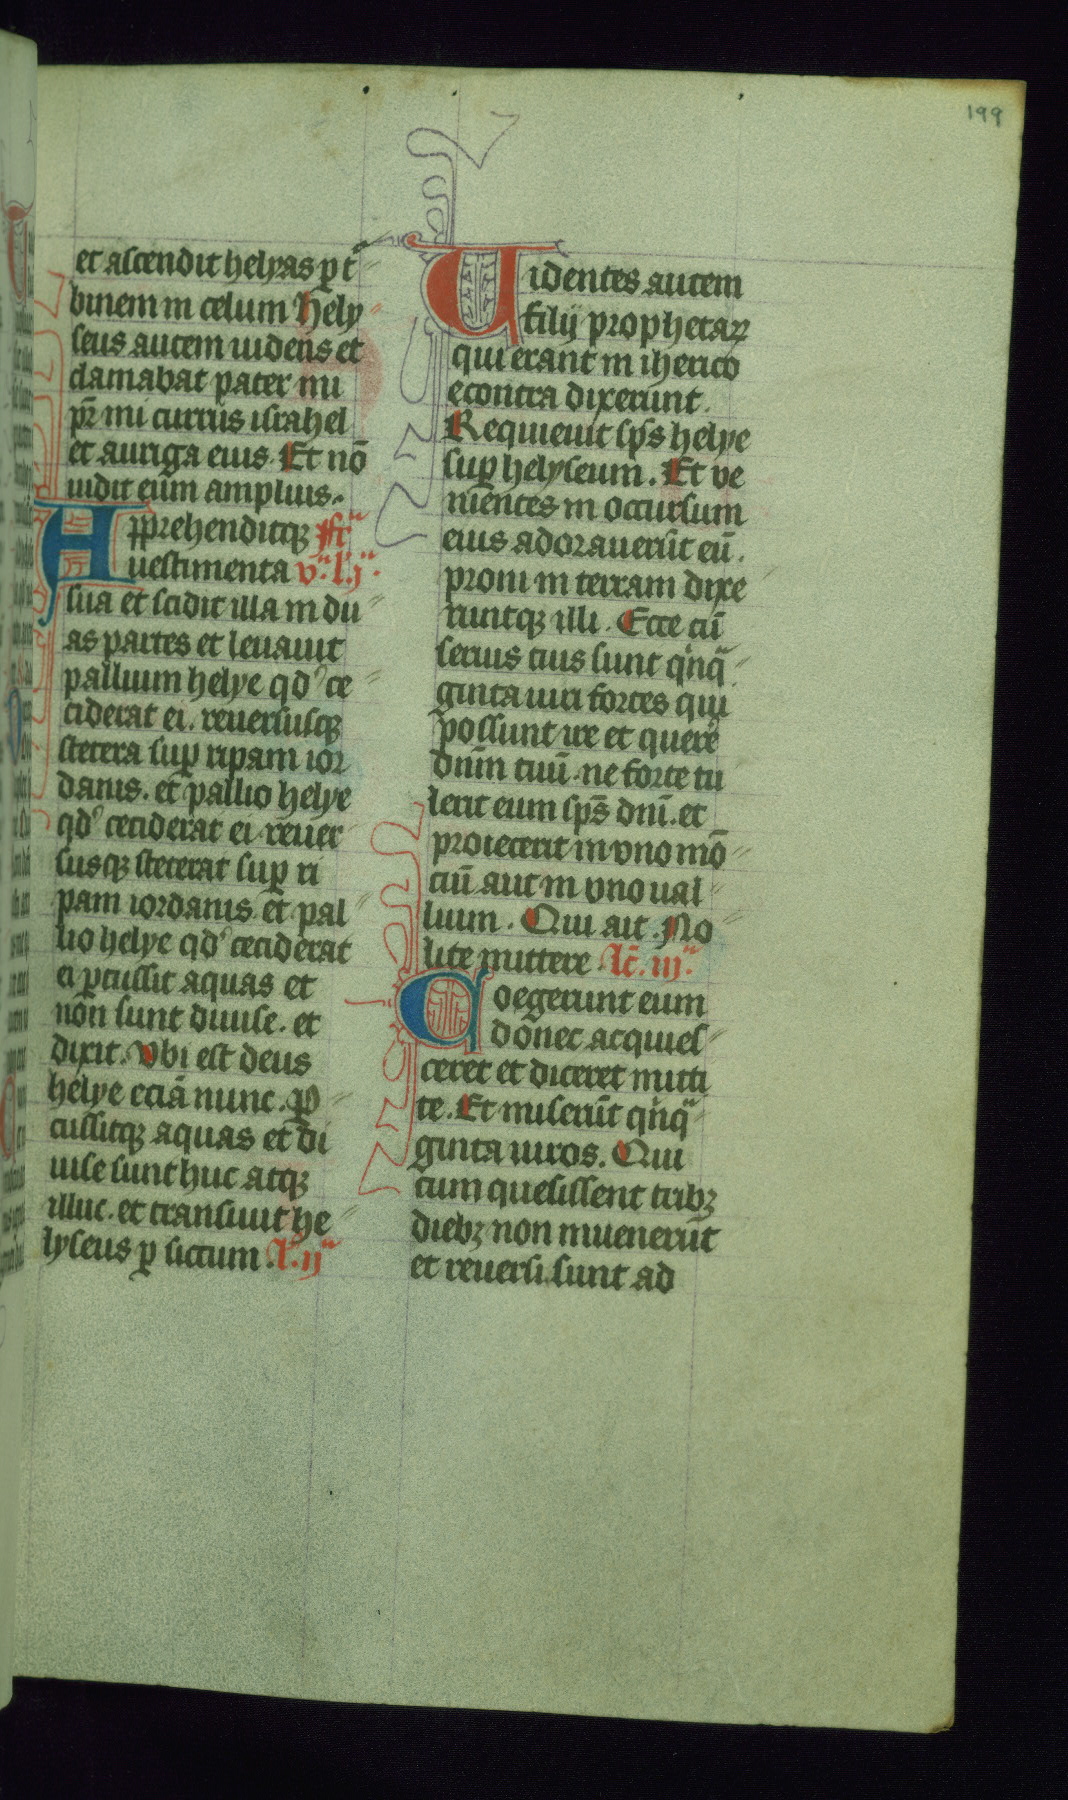 199
et ascendit helyas p t
binem in celum Hely
seus autem uidens et
clamabat pater mi
pr̄ mi currus israhel
et auriga eius. Et nō
uidit eum amplius.
Apprehenditqꝫ
uestimenta
sua et scidit illa in du
as partes et leuauit
pallium helye qd' ce
ciderat ei. reuersusqꝫ
stetera suꝑ ripam ior
danis. et pallio helye
qd' ceciderat ei reuer
susqꝫ steterat suꝑ ri
pam iordanis et pal
lio helye qd' ceciderat
ei ꝑcussit aquas et
non sunt diuise. et
dixit. Vbi est deus
helye eciā nunc. ꝑ
cussitqꝫ aquas et di
uise sunt huc atqꝫ
illuc. et transiuit he
lyseus ꝑ siccum. l'. ij
Uidentes autem
filij prophetaꝝ
qui erant in iherico
econtra dixerunt.
Requieuit sp̄s helye
suꝑ helyseum. Et ve
nientes in occursum
eius adorauerūt eū.
proni in terram dixe
runtqꝫ illi. Ecce cū
seruis tuis sunt qͥnqͣ
ginta uiri fortes qui
possunt ire et querē
dnm̄ tuū. ne forte tu
lerit eum sp̄s dnī. et
proiecerit in vno mō
ciū aut in vno ual
lium. Qui ait. No
lite mittere lc̄. iij
Coegerunt eum
donec acquies
ceret et diceret mitti
te. Et miserūt qͥnqͣ
ginta uiros. Qui
cum quesissent tribꝫ
diebꝫ non inuenerūt
et reuersi sunt ad